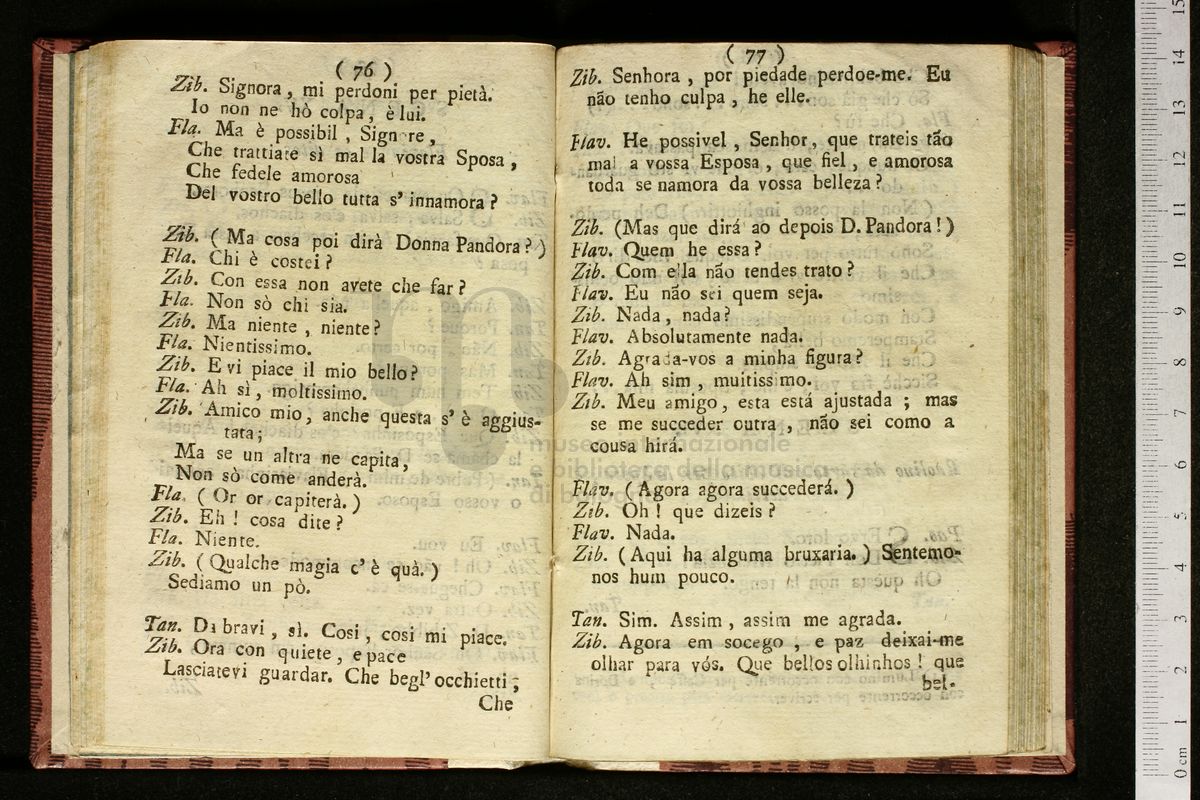 ( 76 )
Zib. Signora, mi perdoni per pietà.
Io non ne hò colpa, è lui.
Fla. Ma è possibil, Signore,
Che trattiate sì mal la vostra Sposa,
Che fedele amorosa
Del vostro bello tutta s' innamora?
Zib. (Ma cosa poi dirà Donna Pandora?)
Fla. Chi è costei?
Zib. Con essa non avete che far?
Fla. Non sò chi sia.
Zib. Ma niente, niente?
Fla. Nientissimo.
Zib. E vi piace il mio bello?
Fla. Ah sì, moltissimo.
Zib. Amico mio, anche questa s' è aggius-
tata;
Ma se un altra ne capita,
Non sò come anderà.
Fla. (Or or capiterà.)
Zib. Eh! cosa dite?
Fla. Niente.
Zib. (Qualche magia c' è quà.)
Sediamo un pò.
Tan. Da bravi, sì. Cosi, cosi mi piace.
Zib. Ora con quiete, e pace
Lasciatevi guardar. Che begl' occhietti;
Che
( 77 )
Zib. Senhora, por piedade perdoe-me. Eu
não tenho culpa, he elle.
Flav. He possivel, Senhor, que trateis tão
mal a vossa Esposa, que fiel, e amorosa
toda se namora da vossa belleza?
Zib. (Mas que dirá ao depois D. Pandora!)
Flav. Quem he essa?
Zib. Com ella não tendes trato?
Flav. Eu não sei quem seja.
Zib. Nada, nada?
Flav. Absolutamente nada.
Zib. Agrada-vos a minha figura?
Flav. Ah sim, muitissimo.
Zib. Meu amigo, esta está ajustada; mas
se me succeder outra, não sei como a
cousa hirá.
Flav. (Agora agora succederá.)
Zib. Oh! que dizeis?
Flav. Nada.
Zib. (Aqui ha alguma bruxaria.) Sentemo-
nos hum pouco.
Tan. Sim. Assim, assim me agrada.
Zib. Agora em socego, e paz deixai-me
olhar para vós. Que bellos olhinhos! que
bel-
museo internazionale
e biblioteca della musica
di bologna
0 cm 1 2 3 4 5 6 7 8 9 10 11 12 13 14 15